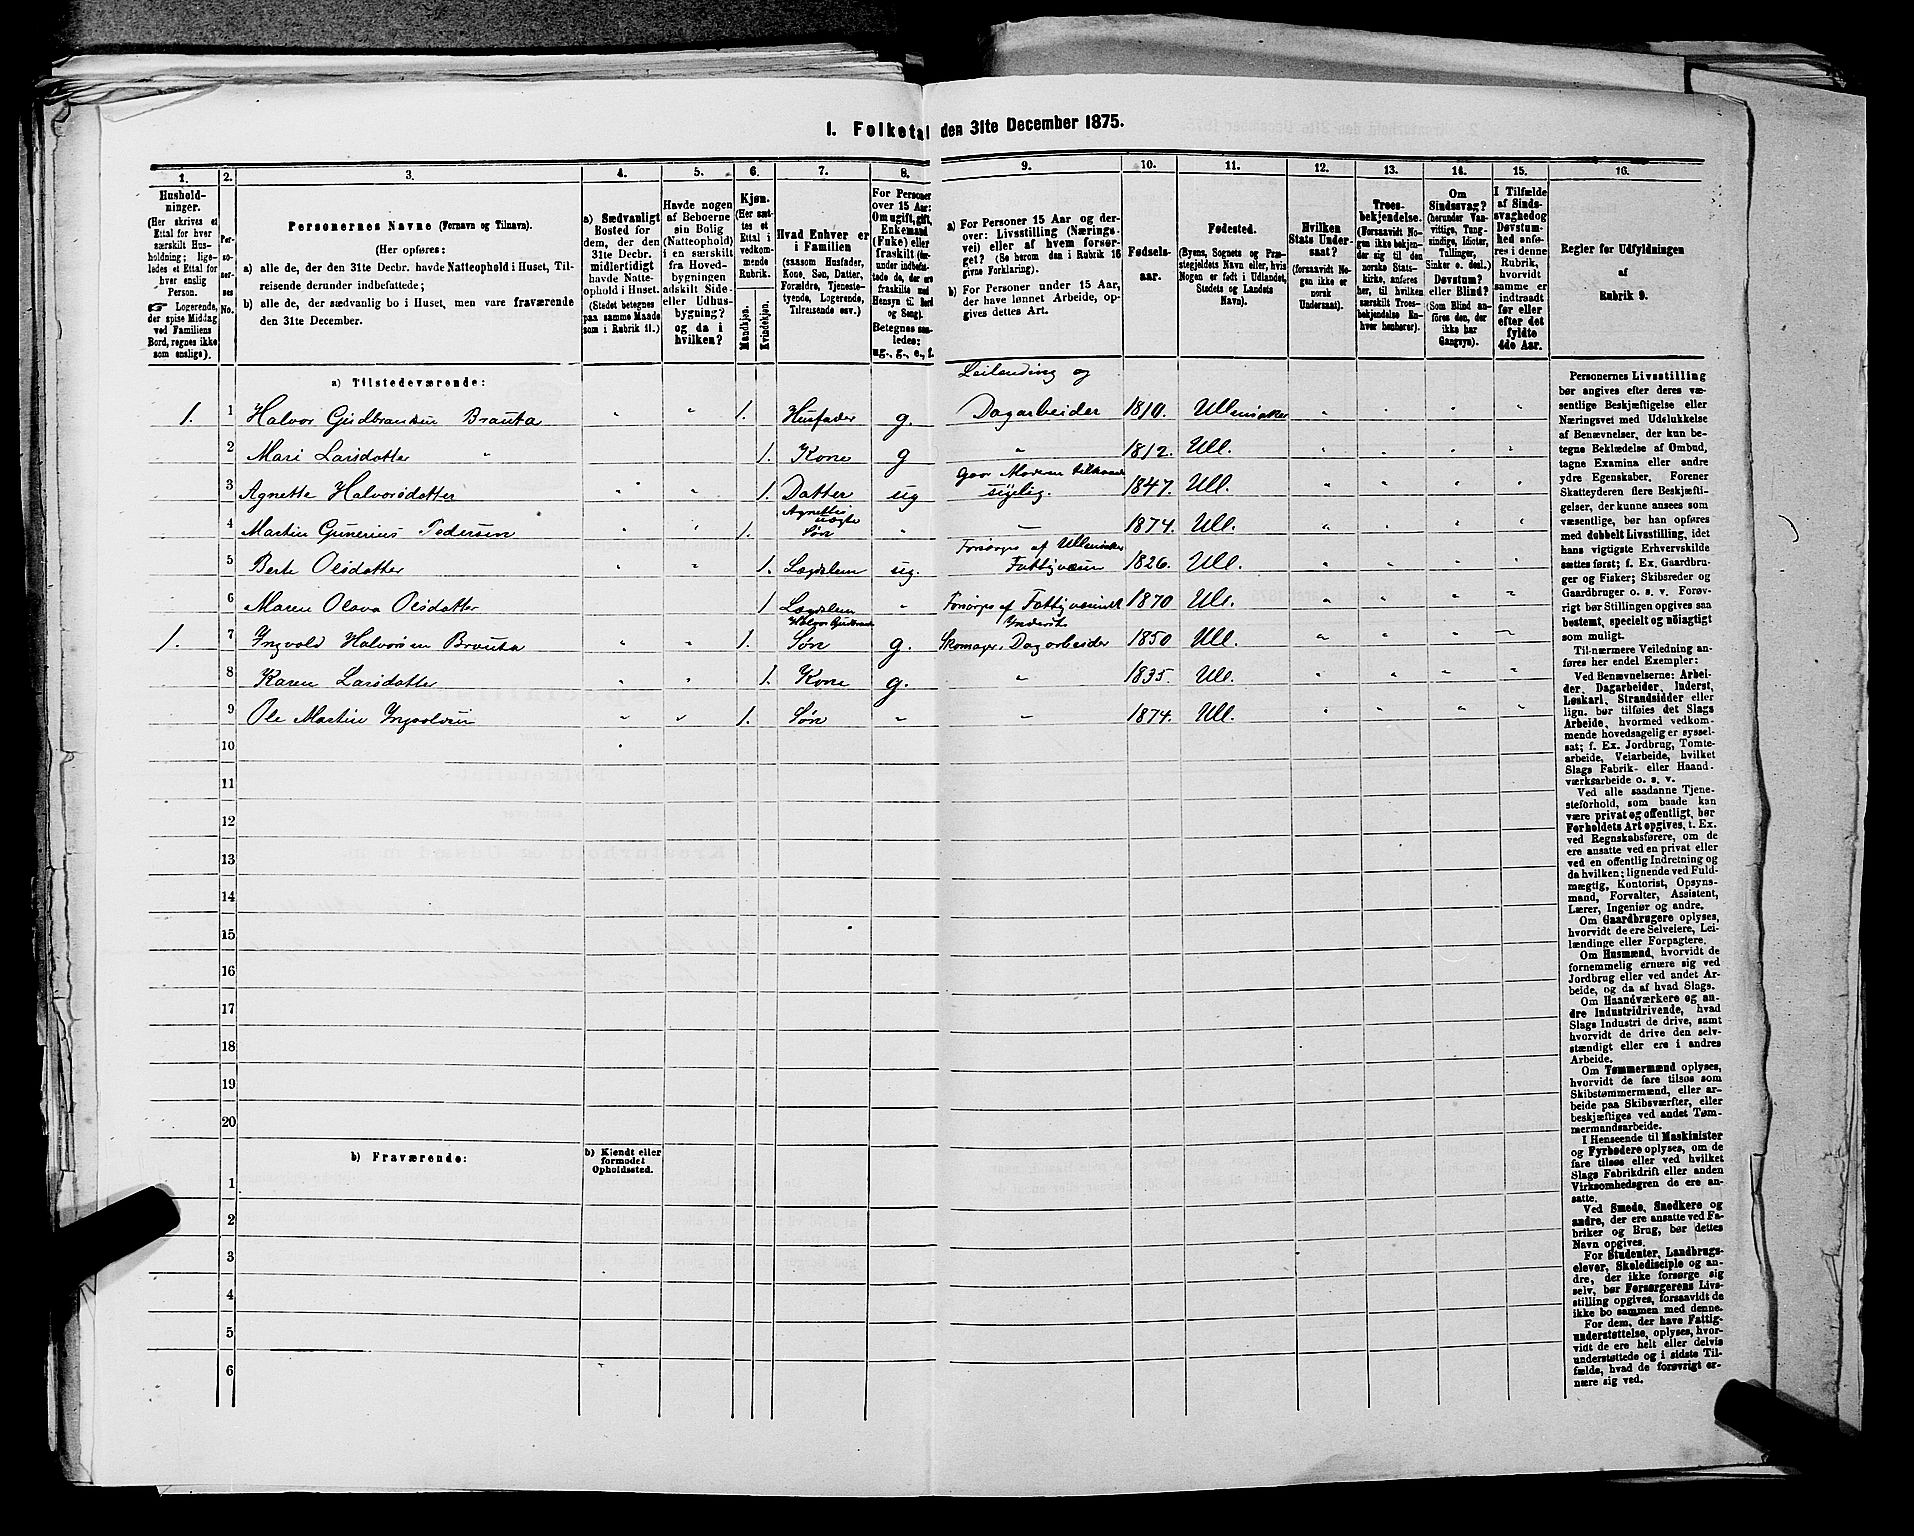 I. Folketal den 31te December 1875.
1. 2. 3. 4. 5. 6. 7. 8. 9. 10. 11. 12. 13. 14. 15. 16.
Hushold-
ninger.
(Her skrives et
Ettal for hver
særskilt Hus-
holdning; lige-
ledes et Ettal for
hver enslig
Person.
☞ Logerende,
der spise Middag
ved Familiens
Bord, regnes ikke
som enslige).
Per-
so-
ner-
nes
No.
Personernes Navne (Fornavn og Tilnavn).
(Her opføres:
a) alle de, der den 31te Decbr. havde Natteophold i Huset, Til-
reisende derunder indbefattede;
b) alle de, der sædvanlig bo i Huset, men vare fraværende
den 31te December.
a) Sædvanligt
Bosted for
dem, der den
31te Decbr.
midlertidigt
havde Natte-
ophold i Huset.
(Stedet betegnes
paa samme Maade
som i Rubrik 11.)
Havde nogen
af Beboerne
sin Bolig
(Natteophold)
i en særskilt
fra Hoved-
bygningen
adskilt Side-
eller Udhus-
bygning?
og da i
hvilken?
Kjøn.
(Her sæt-
tes et
Ettal i
vedkom-
mende
Rubrik.
Mandkjøn.
Kvindekjøn.
Hvad Enhver er
i Familien
(saasom Husfader,
Kone, Søn, Datter,
Forældre, Tjeneste-
tyende, Logerende,
Tilreisende osv.)
For Personer
over 15 Aar:
Om ugift, gift,
Enkemand
(Enke) eller
fraskilt
Betegnes saa-
ledes:
ug., g., e., f.
a) For Personer 15 Aar og der-
over: Livsstilling (Nærings-
vei) eller af hvem forsør-
get? (Se herom den i Rubrik 16
givne Forklaring).
b) For Personer under 15 Aar,
der have lønnet Arbeide, op-
gives dettes Art.
Fødsels-
aar.
Fødested.
(Byens, Sognets og Præ-
stegjeldets Navn eller, hvis
Nogen er født i Udlandet,
Stedets og Landets
Navn).
Hvilken
Stats Under-
saat?
(forsaavidt No-
gen ikke er
norsk
Undersaat).
Troes-
bekjendelse.
(Forsaavidt No-
gen ikke bekjen-
der sig til den
norske Stats-
kirke, anføres
her, til hvilken
særskilt Troes-
bekjendelse En-
hver henhører).
Om
Sindssvag?
(herunder Van-
vittige, Tung-
sindige, Idioter,
Tullinger,
Sinker o. desl.)
Døvstum?
eller Blind?
(Som Blind an-
føres den, der
ikke har
Gangsyn).
I Tilfælde
af Sinds-
svaghed og
Døvstum-
hed anfø-
res i denne
Rubrik,
hvorvidt
samme er
indtraadt
før eller
efter det
fyldte
4de Aar.
Regler for Udfyldningen
af
Rubrik 9.
a) Tilstedeværende:
Leilending og
1. 1 Halvor Gudbransen Brauta " " 1. Husfader g. Dagarbeider 1810. Ullensaker " " " "
2 Mari Larsdatter " 1. Kone g " 1812. Ull. " " " "
3 Agnette Halvorsdatter " " 1. Datter ug Gaar Moderen tilhaande sygelig. 1847. Ull. " " " "
4 Martin Gunerius Pedersen " " 1. Agnettes uægte Søn " — 1874. Ull. " " " "
5 Berte Olsdatter " " 1. Lægdslem ug. Forsørges af Ullensaker Fattigvæsen 1826. Ull. " " " "
6 Maren Olava Olsdatter 1 Lægdslem " Forsørges af Fattigvæsenet 1870 Ull. " " " "
1. 7 Ingvold Halvorsen Brauta " " 1. Søn g. Inderst Skomager, Dagarbeider 1850 Ull. " " " "
8 Karen Larsdatter " " 1. Kone g. " 1835. Ull. " " " "
9 Ole Martin Ingvoldsen " " 1. Søn " " 1874. Ull. " " " "
10
11
12
13
14
15
16
17
18
19
20
b) Fraværende:
b) Kjendt eller
formodet
Opholdssted.
1
2
3
4
5
6
Personernes Livsstilling
bør angives efter deres væ-
sentlige Beskjæftigelse eller
Næringsvei med Udelukkelse
af Benævnelser, der kun be-
tegne Beklædelse af Ombud,
tagne Examina eller andre
ydre Egenskaber. Forener
Skatteyderen flere Beskjæfti-
gelser, der kunne ansees som
væsentlige, bør han opføres
med dobbelt Livsstilling, idet
hans vigtigste Erhvervskilde
sættes først; f. Ex. Gaardbru-
ger og Fisker; Skibsreder og
Gaardbruger o. s. v. Forøv-
rigt bør Stillingen opgives saa
bestemt, specielt og nøiagtigt
som muligt.
Til nærmere Veiledning an-
føres her endel Exempler:
Ved Benævnelserne: Arbei-
der, Dagarbeider, Inderst,
Løskarl, Strandsidder eller
lign. bør tilføies det Slags
Arbeide, hvormed vedkom-
mende hovedsagelig er syssel-
sat; f. Ex. Jordbrug, Tomte-
arbeide, Veiarbeide, hvilket
Slags Fabrik- eller Haand-
værksarbeide o. s. v.
Ved alle saadanne Tjene-
steforhold, som baade kan
være privat og offentligt, bør
Forholdets Art opgives, f. Ex.
ved Regnskabsførere, om de
ere ansatte ved en privat eller
ved en offentlig Indretning og
da hvilken; lignende ved Fuld-
mægtig, Kontorist, Opsyns-
mand, Forvalter, Assistent,
Lærer, Ingeniør og andre.
Om Gaardbrugere oplyses,
hvorvidt de ere Selveiere, Lei-
lændinge eller Forpagtere.
Om Husmænd, hvorvidt de
fornemmelig ernære sig ved
Jordbrug eller ved andet Ar-
beide, og da af hvad Slags.
Om Haandværkere og an-
dre Industridrivende, hvad
Slags Industri de drive, samt
hvorvidt de drive den selv-
stændigt eller ere i andres
Arbeide.
Om Tømmermænd oplyses,
hvorvidt de fare tilsøs som
Skibstømmermænd, eller ar-
beide paa Skibsværfter, eller
beskjæftiges ved andet Tøm-
mermandsarbeide.
I Henseende til Maskinister
og Fyrbødere oplyses, om de
fare tilsøs eller ved hvilket
Slags Fabrikdrift eller anden
Virksomhedsgren de ere an-
satte.
Ved Smede, Snedkere og
andre, der ere ansatte ved Fa-
briker og Brug, bør dettes
Navn opgives.
For Studenter, Landbrugs-
elever, Skoledisciple og an-
dre, der ikke forsørge sig
selv, bør Forsørgerens Livs-
stilling opgives, forsaavidt de
ikke bo sammen med denne.
For dem, der have Fattig-
understøttelse, oplyses, hvor-
vidt de ere helt eller delvis
understøttede og i sidste Til-
fælde, hvad de forøvrigt er-
nære sig ved.